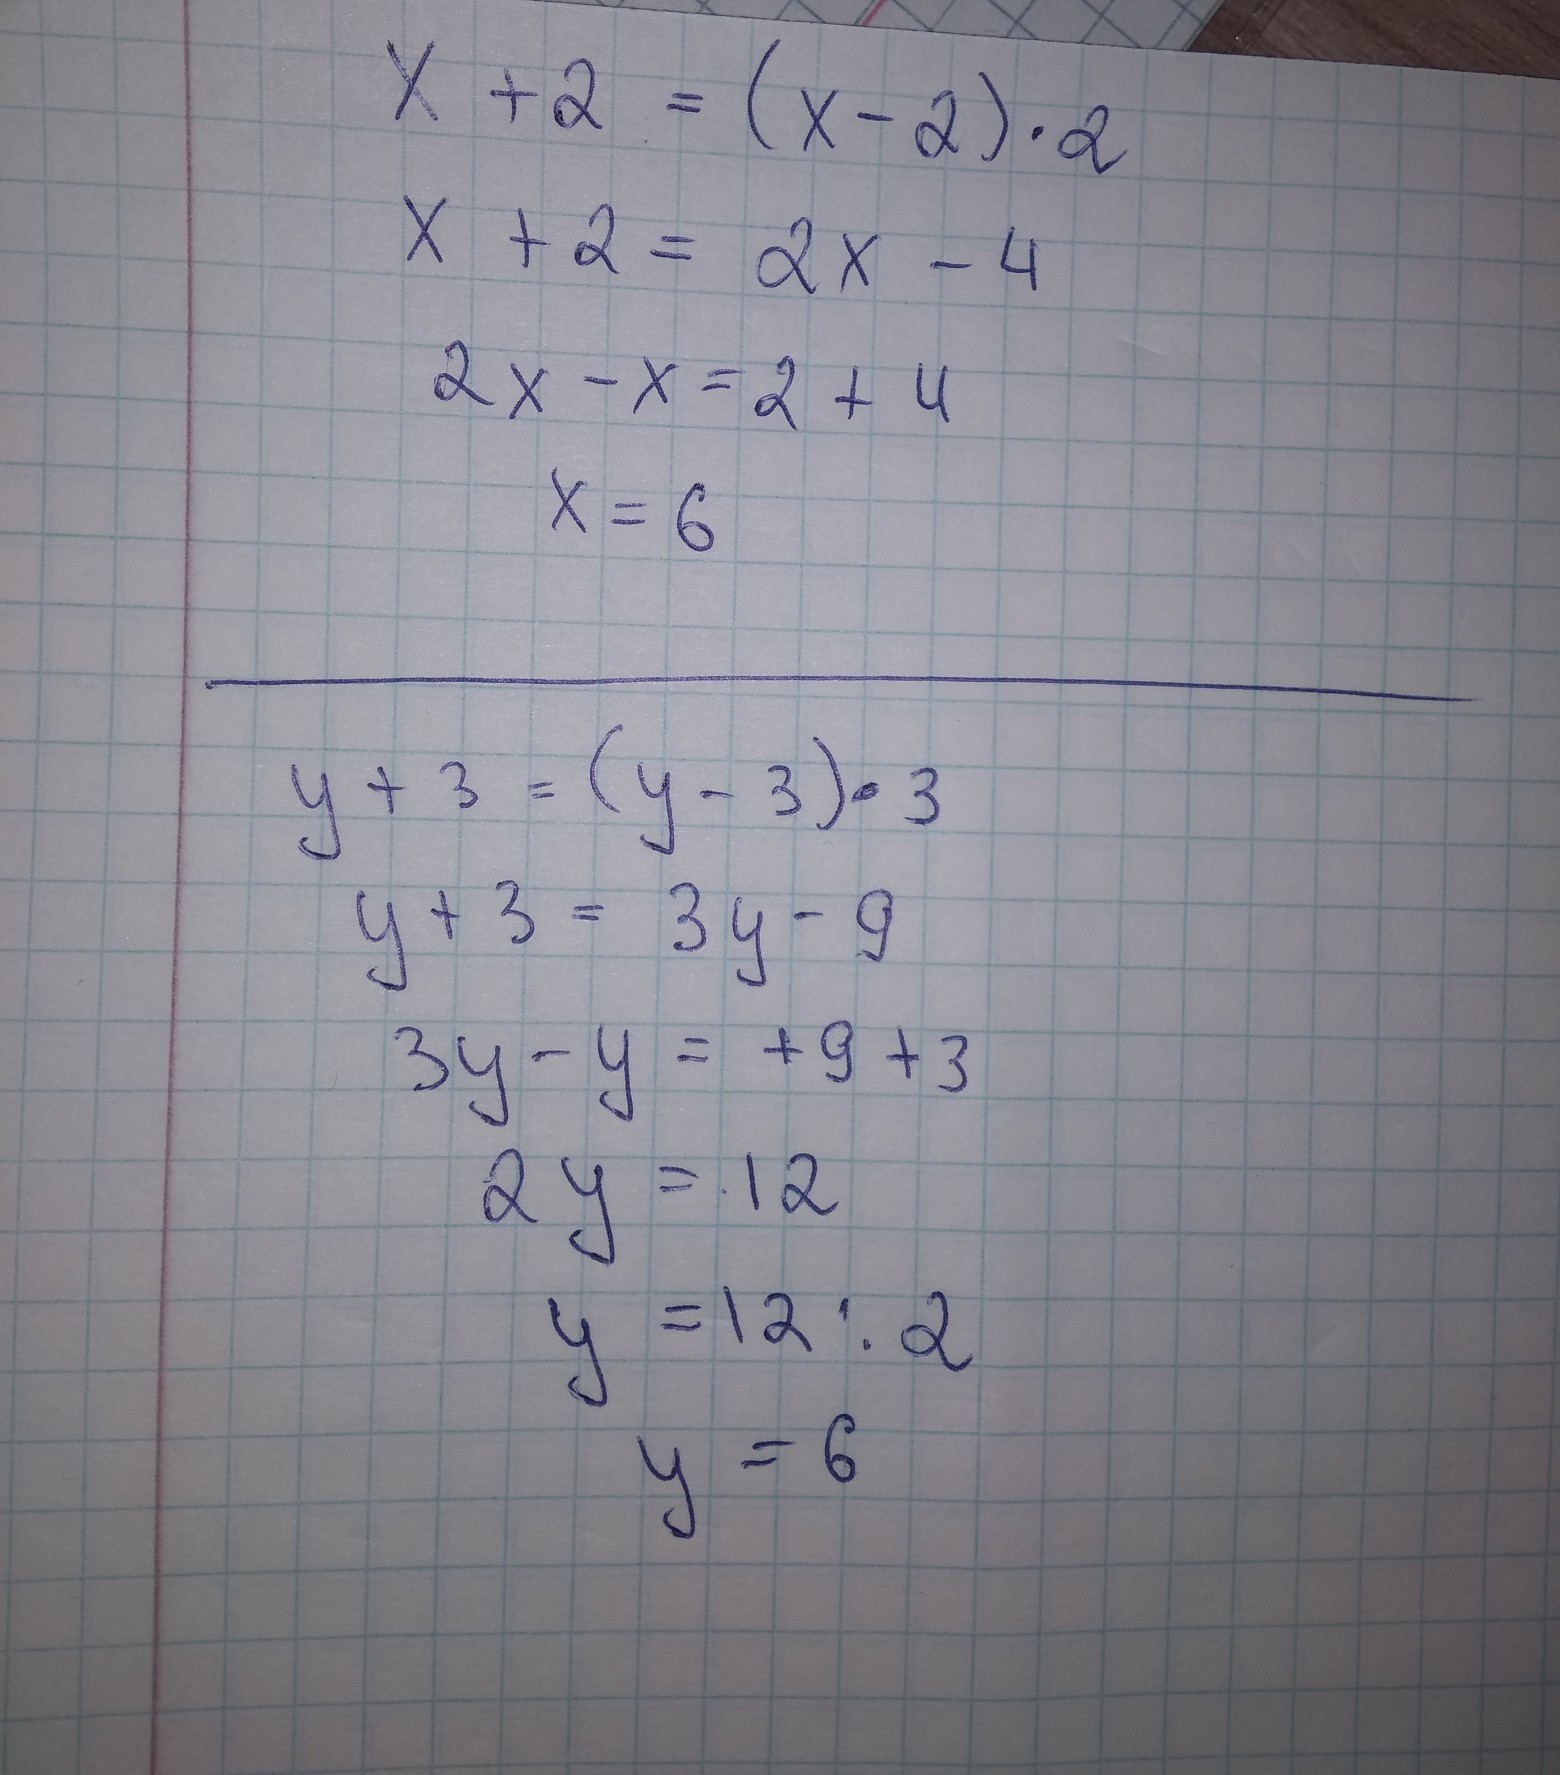 x + 2 = (x - 2) · 2
x + 2 = 2x - 4
2x - x = 2 + 4
x = 6
y + 3 = (y - 3) · 3
y + 3 = 3y - 9
3y - y = +9 + 3
2y = 12
y = 12 : 2
y = 6